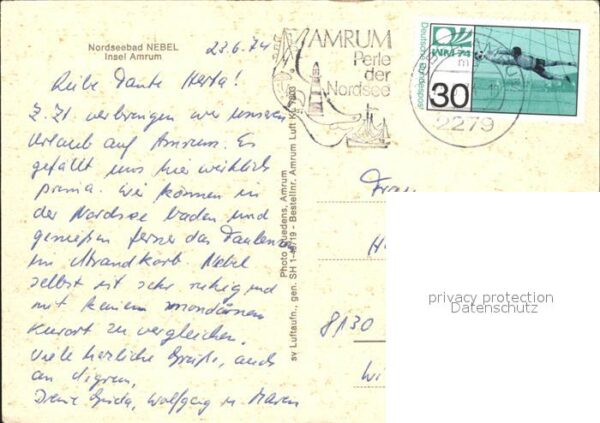 Nordseebad NEBEL
Insel Amrum
23.6.74
Liebe Tante Herta!
Z. Zt. verbringen wir unseren
Urlaub auf Amrum. Es
gefällt uns hier wirklich
prima. Wir können in
der Nordsee baden und
genießen ferner das Faulenzen
im Strandkorb. Nebel
selbst ist sehr ruhig und
mit keinem mondänen
Kurort zu vergleichen.
Viele herzliche Grüße, auch
an
Deine Gerda, Wolfgang u. Maren
AMRUM
Perle
der
Nordsee
Deutsche Bundespost
WM 74
30
2279
Photo Quedens, Amrum
sv Luftaufn., gen. SH 1-49/19 - Bestellnr. Amrum Luft K 7803
Frau
H
8130
privacy protection
Datenschutz